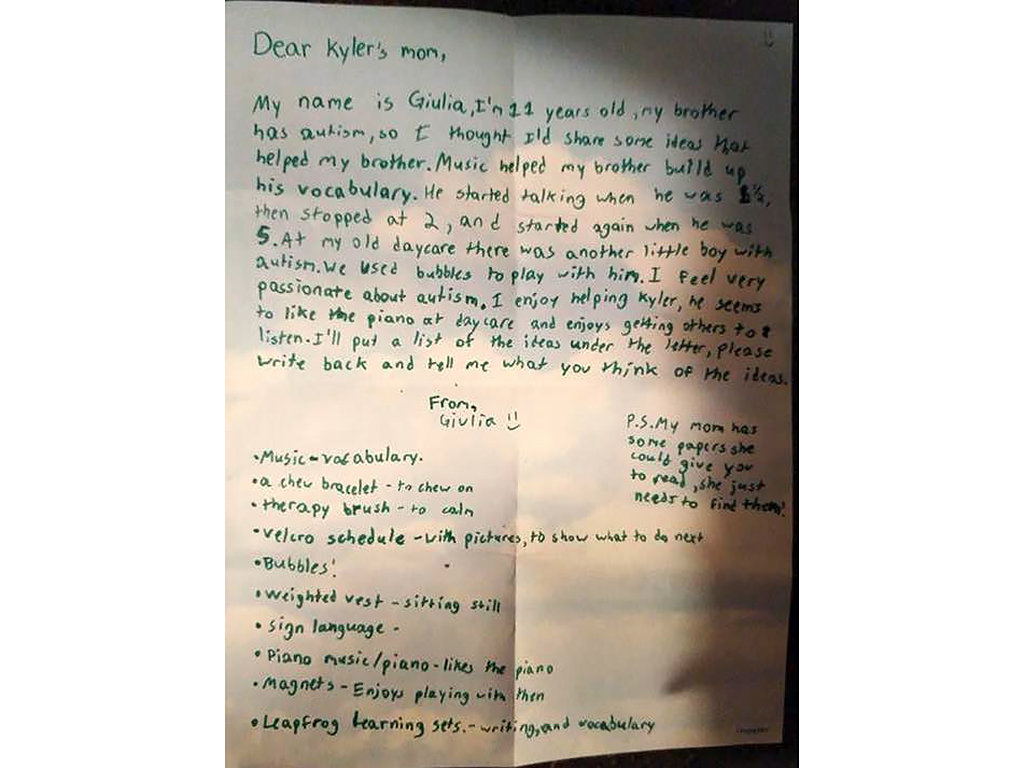 Dear Kyler's mom,
My name is Giulia, I'm 11 years old, my brother
has autism, so I thought I'd share some ideas that
helped my brother. Music helped my brother build up
his vocabulary. He started talking when he was 1½,
then stopped at 2, and started again when he was
5. At my old daycare there was another little boy with
autism. We used bubbles to play with him. I feel very
passionate about autism. I enjoy helping Kyler, he seems
to like the piano at daycare and enjoys getting others to
listen. I'll put a list of the ideas under the letter, please
write back and tell me what you think of the ideas.
From,
Giulia
P.S. My mom has
some papers she
could give you
to read, she just
needs to find them!
•Music - vocabulary.
•a chew bracelet - to chew on
•therapy brush - to calm
•velcro schedule - with pictures, to show what to do next
•Bubbles!
•weighted vest - sitting still
•sign language -
•Piano music/piano - likes the piano
•Magnets - Enjoys playing with then
•Leapfrog Learning sets. - writing, and vocabulary